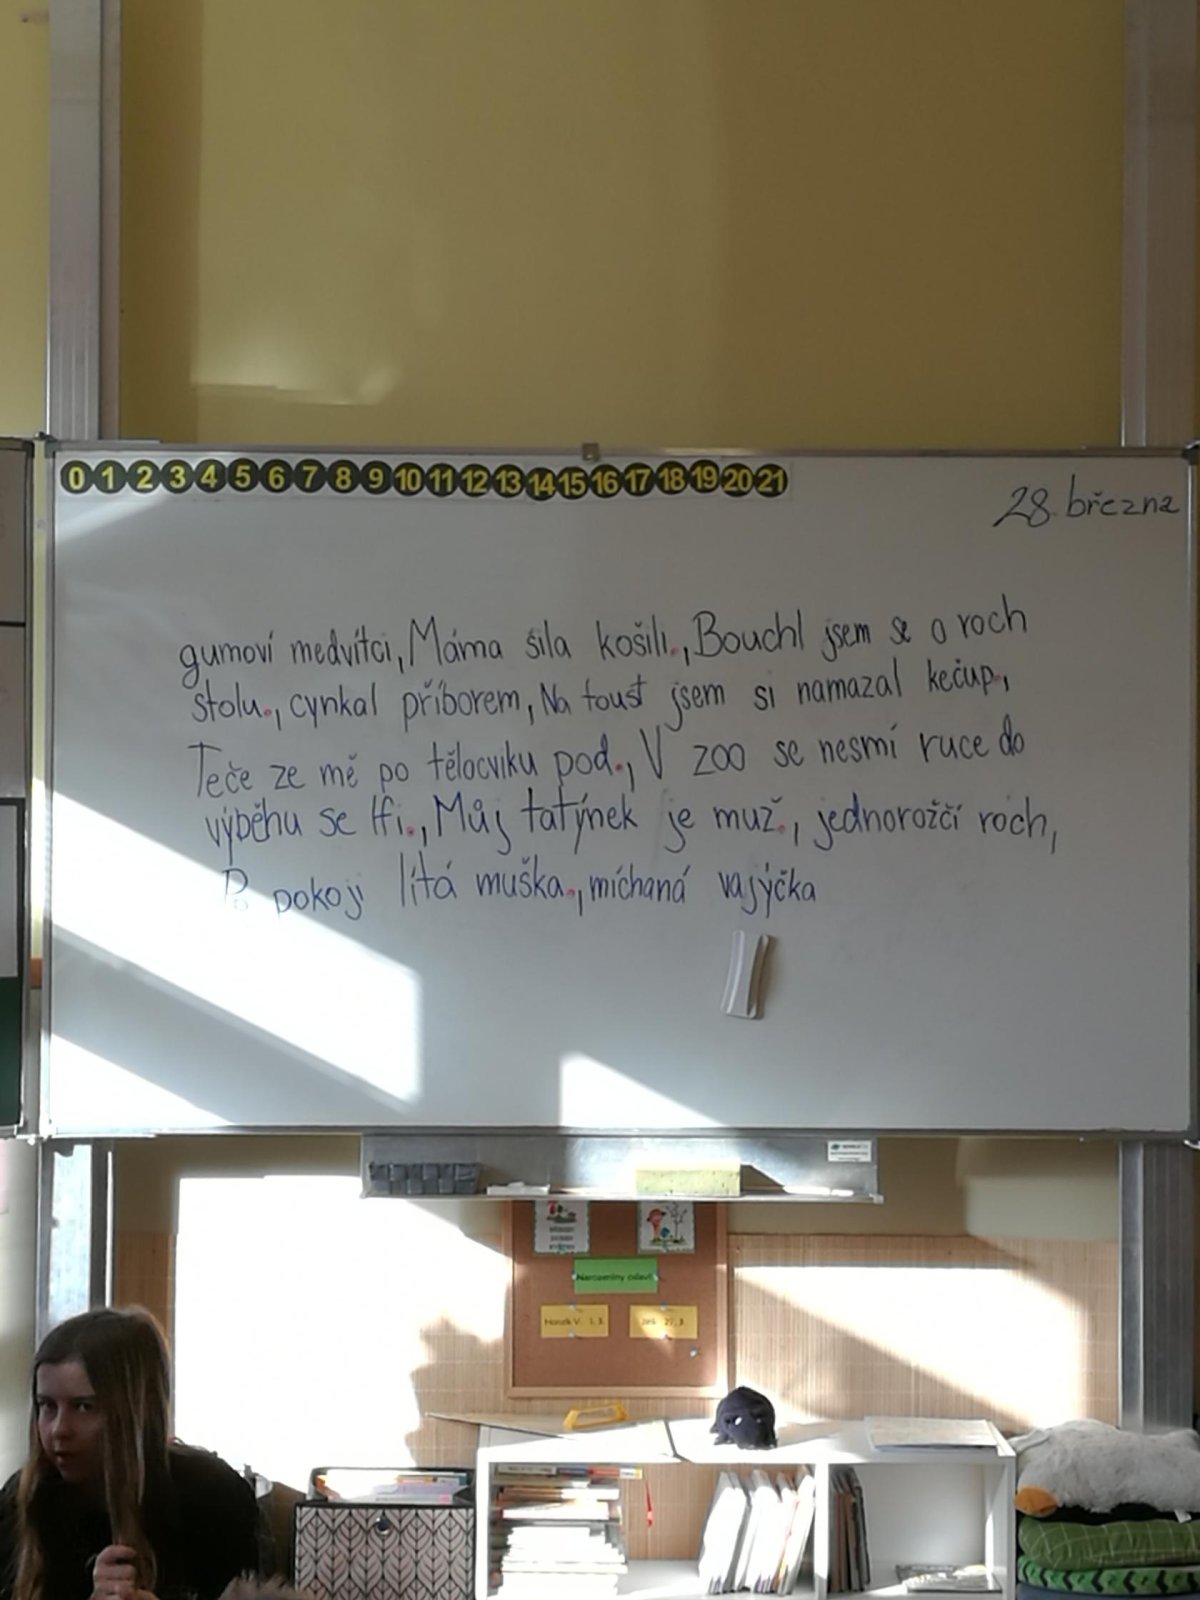 0 1 2 3 4 5 6 7 8 9 10 11 12 13 14 15 16 17 18 19 20 21
28. března
gumoví medvítci, Máma šila košili., Bouchl jsem se o roch
stolu., cynkal příborem, Na toust jsem si namazal kečup.,
Teče ze mě po tělocviku pod., V zoo se nesmí ruce do
výběhu se lfi., Můj tatýnek je muž., jednorožčí roch,
Po pokoji lítá muška., míchaná vajýčka
Narozeniny oslaví
Honzík V. 1. 3.